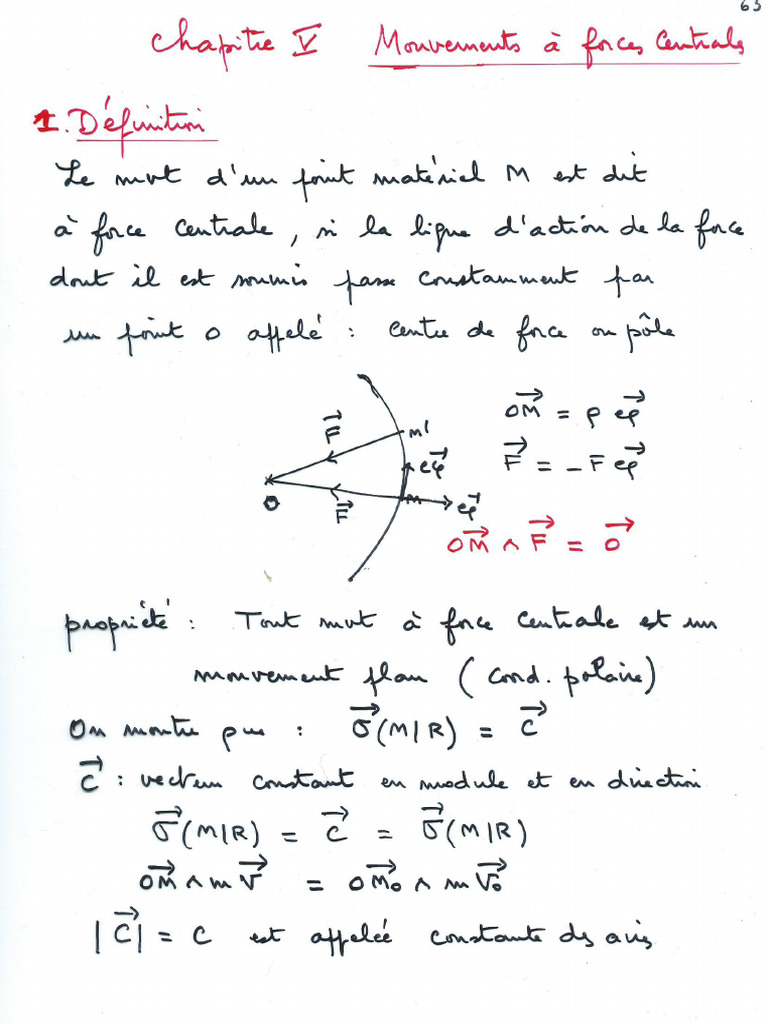 63
Chapitre V Mouvements à forces Centrales
1. Définition
Le mvt d'un point matériel M est dit
à force centrale, si la ligne d'action de la force
dont il est soumis passe constamment par
un point O appelé : centre de force ou pôle
F⃗ M' OM⃗ = ρ eρ⃗
eφ⃗ F⃗ = -F eρ⃗
O F⃗ M eρ⃗
OM⃗ ∧ F⃗ = O⃗
propriété : Tout mvt à force centrale est un
mouvement plan (Cord. polaire)
On montre que : σ⃗(M/R) = C⃗
C⃗ : vecteur constant en module et en direction
σ⃗(M/R) = C⃗ = σ⃗(M/R)
OM⃗ ∧ mV⃗ = OM₀⃗ ∧ mV₀⃗
|C⃗| = C est appelée constante des aires